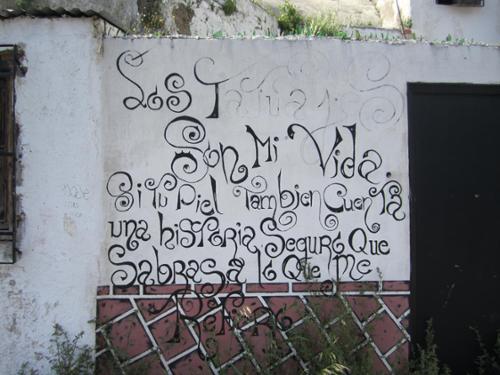 Los Tatuajes
Son Mi Vida.
Si Tu Piel También Cuenta
una histeria Seguro Que
Sabras a lo Que me
Refiero